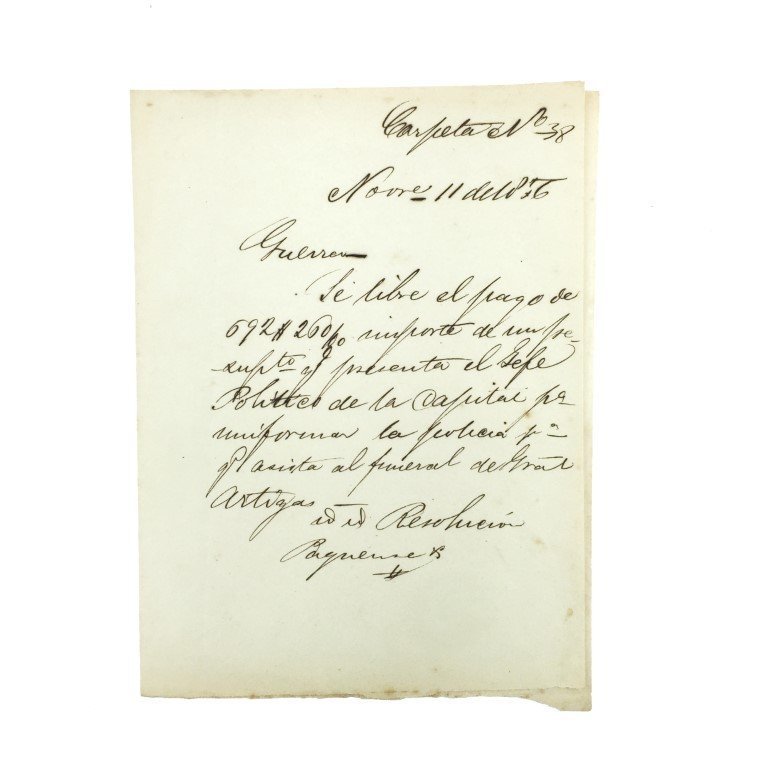 Carpeta No 38
Novre 11 de 1856
Guerra
Se libre el pago de
692 $ 260 importe de un pre-
supto q presenta el Gefe
Politico de la Capital pa
uniformar la policia pa
q asista al funeral del Gral
Artigas
id id Resolución
Paguense